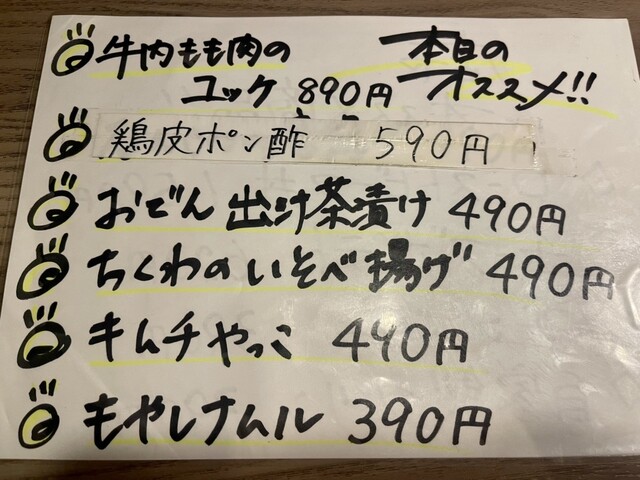 牛内もも肉の
ユッケ 890円
本日の
オススメ!!
鶏皮ポン酢 590円
おでん 出汁茶漬け 490円
ちくわのいそべ揚げ 490円
キムチやっこ 490円
もやしナムル 390円